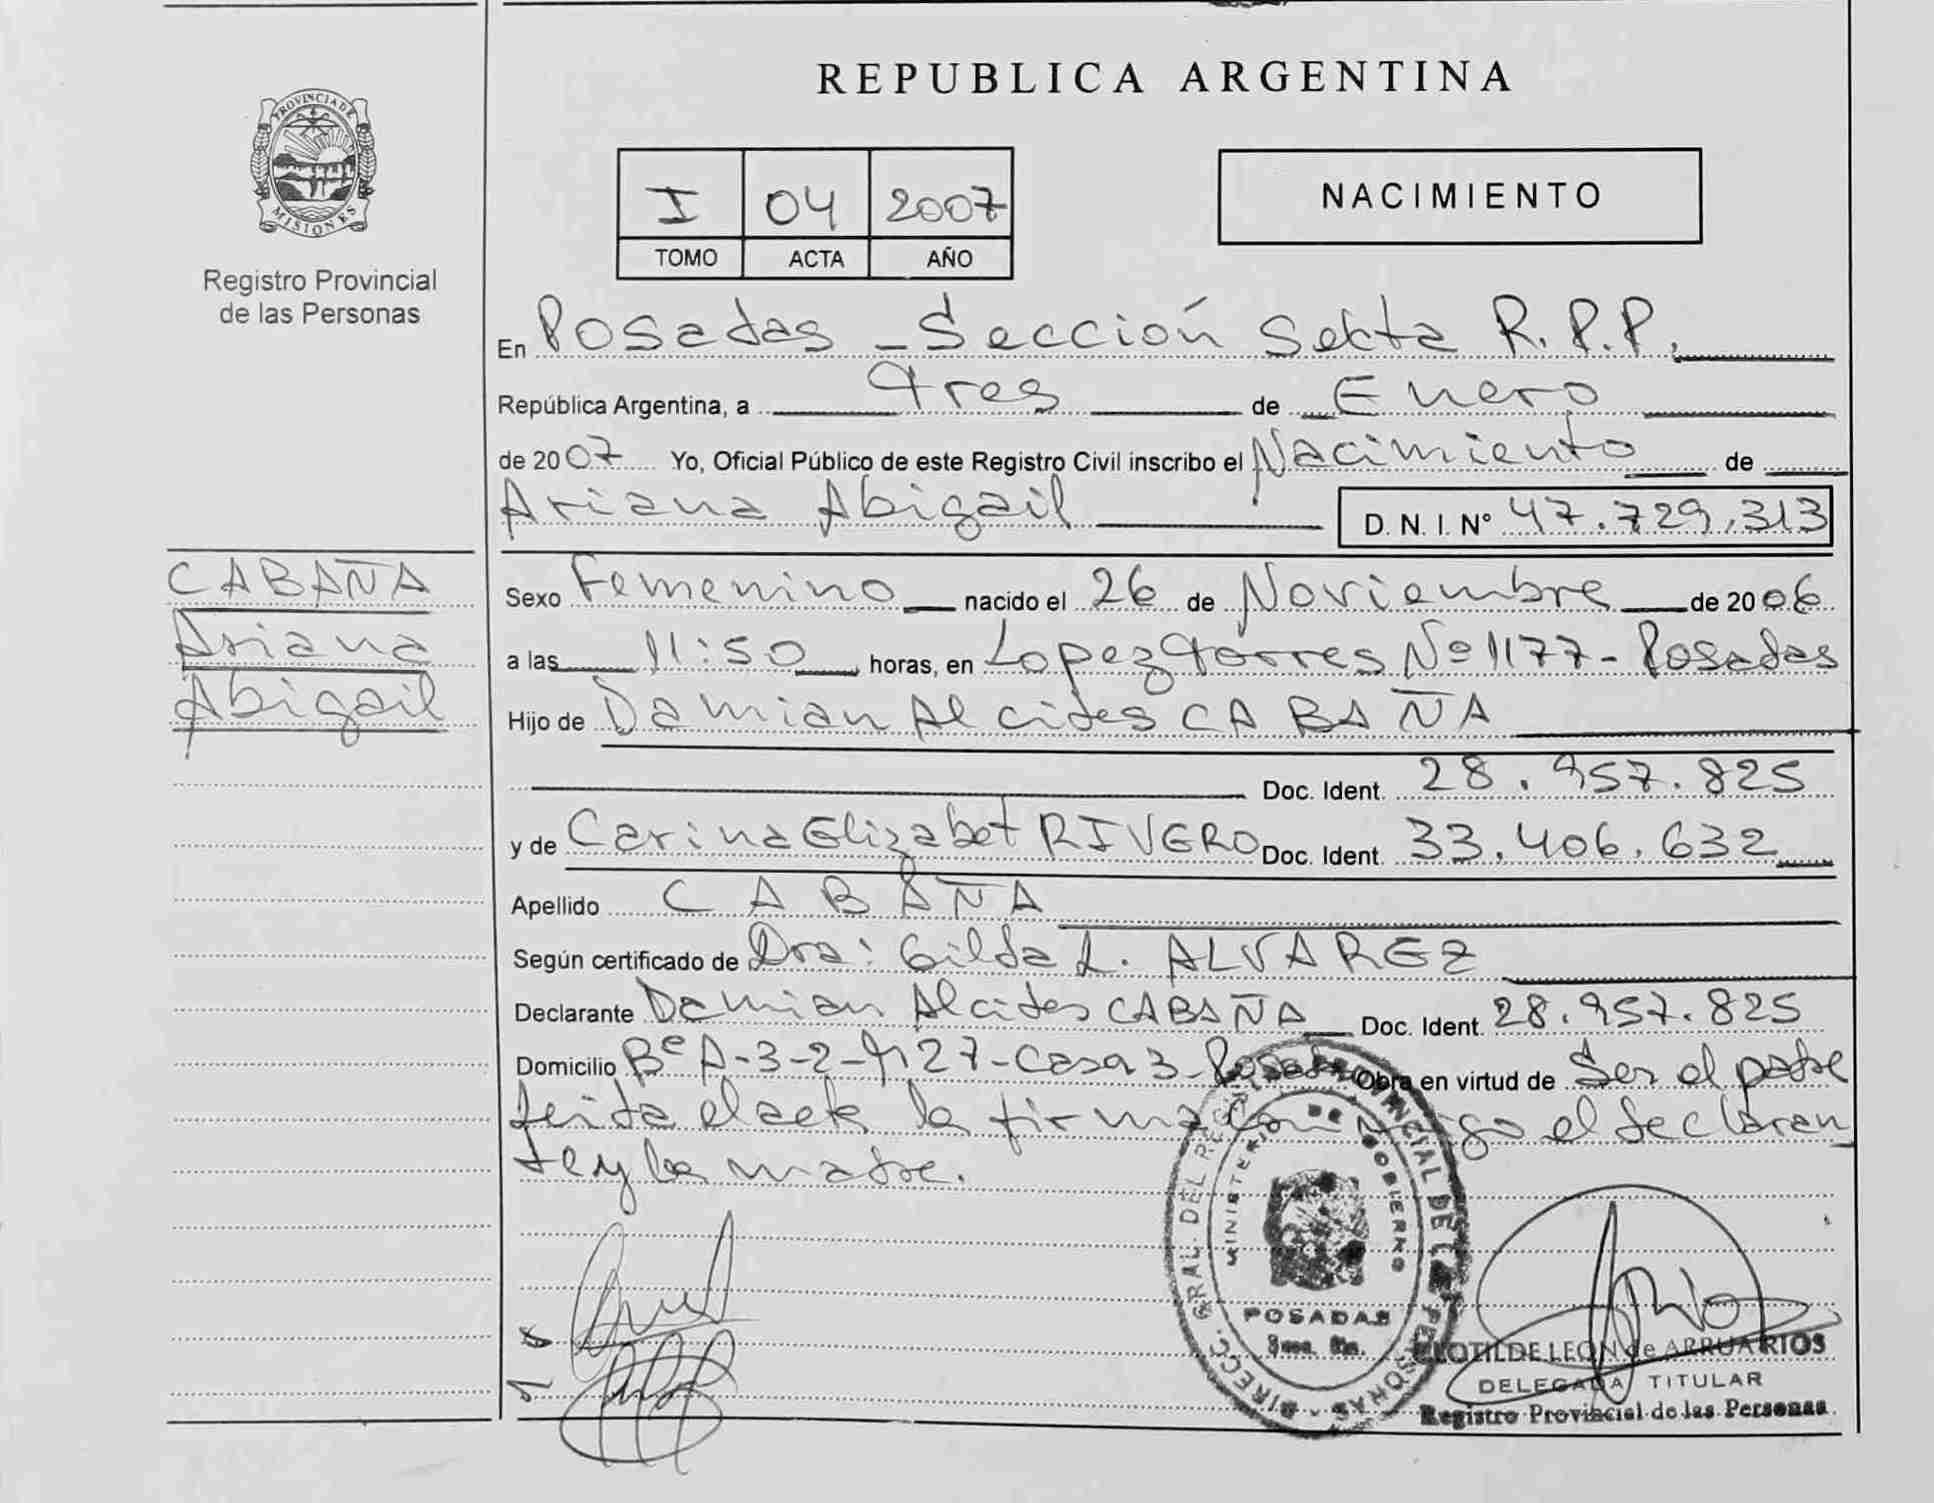 PROVINCIA DE
MISIONES
Registro Provincial
de las Personas
REPUBLICA ARGENTINA
I 04 2007
TOMO ACTA AÑO
NACIMIENTO
En Posadas - Sección Sekta R.P.P.
República Argentina, a Tres de Enero
de 2007 Yo, Oficial Público de este Registro Civil inscribo el Nacimiento de
Ariana Abigail D. N. I. N° 47.729.313
CABAÑA
Ariana
Abigail
Sexo Femenino nacido el 26 de Noviembre de 2006
a las 11:50 horas, en Lopez Torres Nº 1177 - Posadas
Hijo de Damian Alcides CABAÑA
Doc. Ident. 28.957.825
y de Carina Elizabet RIVERO Doc. Ident. 33.406.632
Apellido CABAÑA
Según certificado de Dra: Gilda L. ALVAREZ
Declarante Damian Alcides CABAÑA Doc. Ident. 28.957.825
Domicilio Bº A-3-2- Casa 3 - Posadas Obra en virtud de Ser el padre
leida el acta la firma conmigo el declaran
te y la madre.
DIRECC. GRAL. DEL REG. PROVINCIAL DE LAS PERSONAS
MINISTERIO DE GOBIERNO
POSADAS
CLOTILDE LEON de ARRUA RIOS
DELEGADA TITULAR
Registro Provincial de las Personas